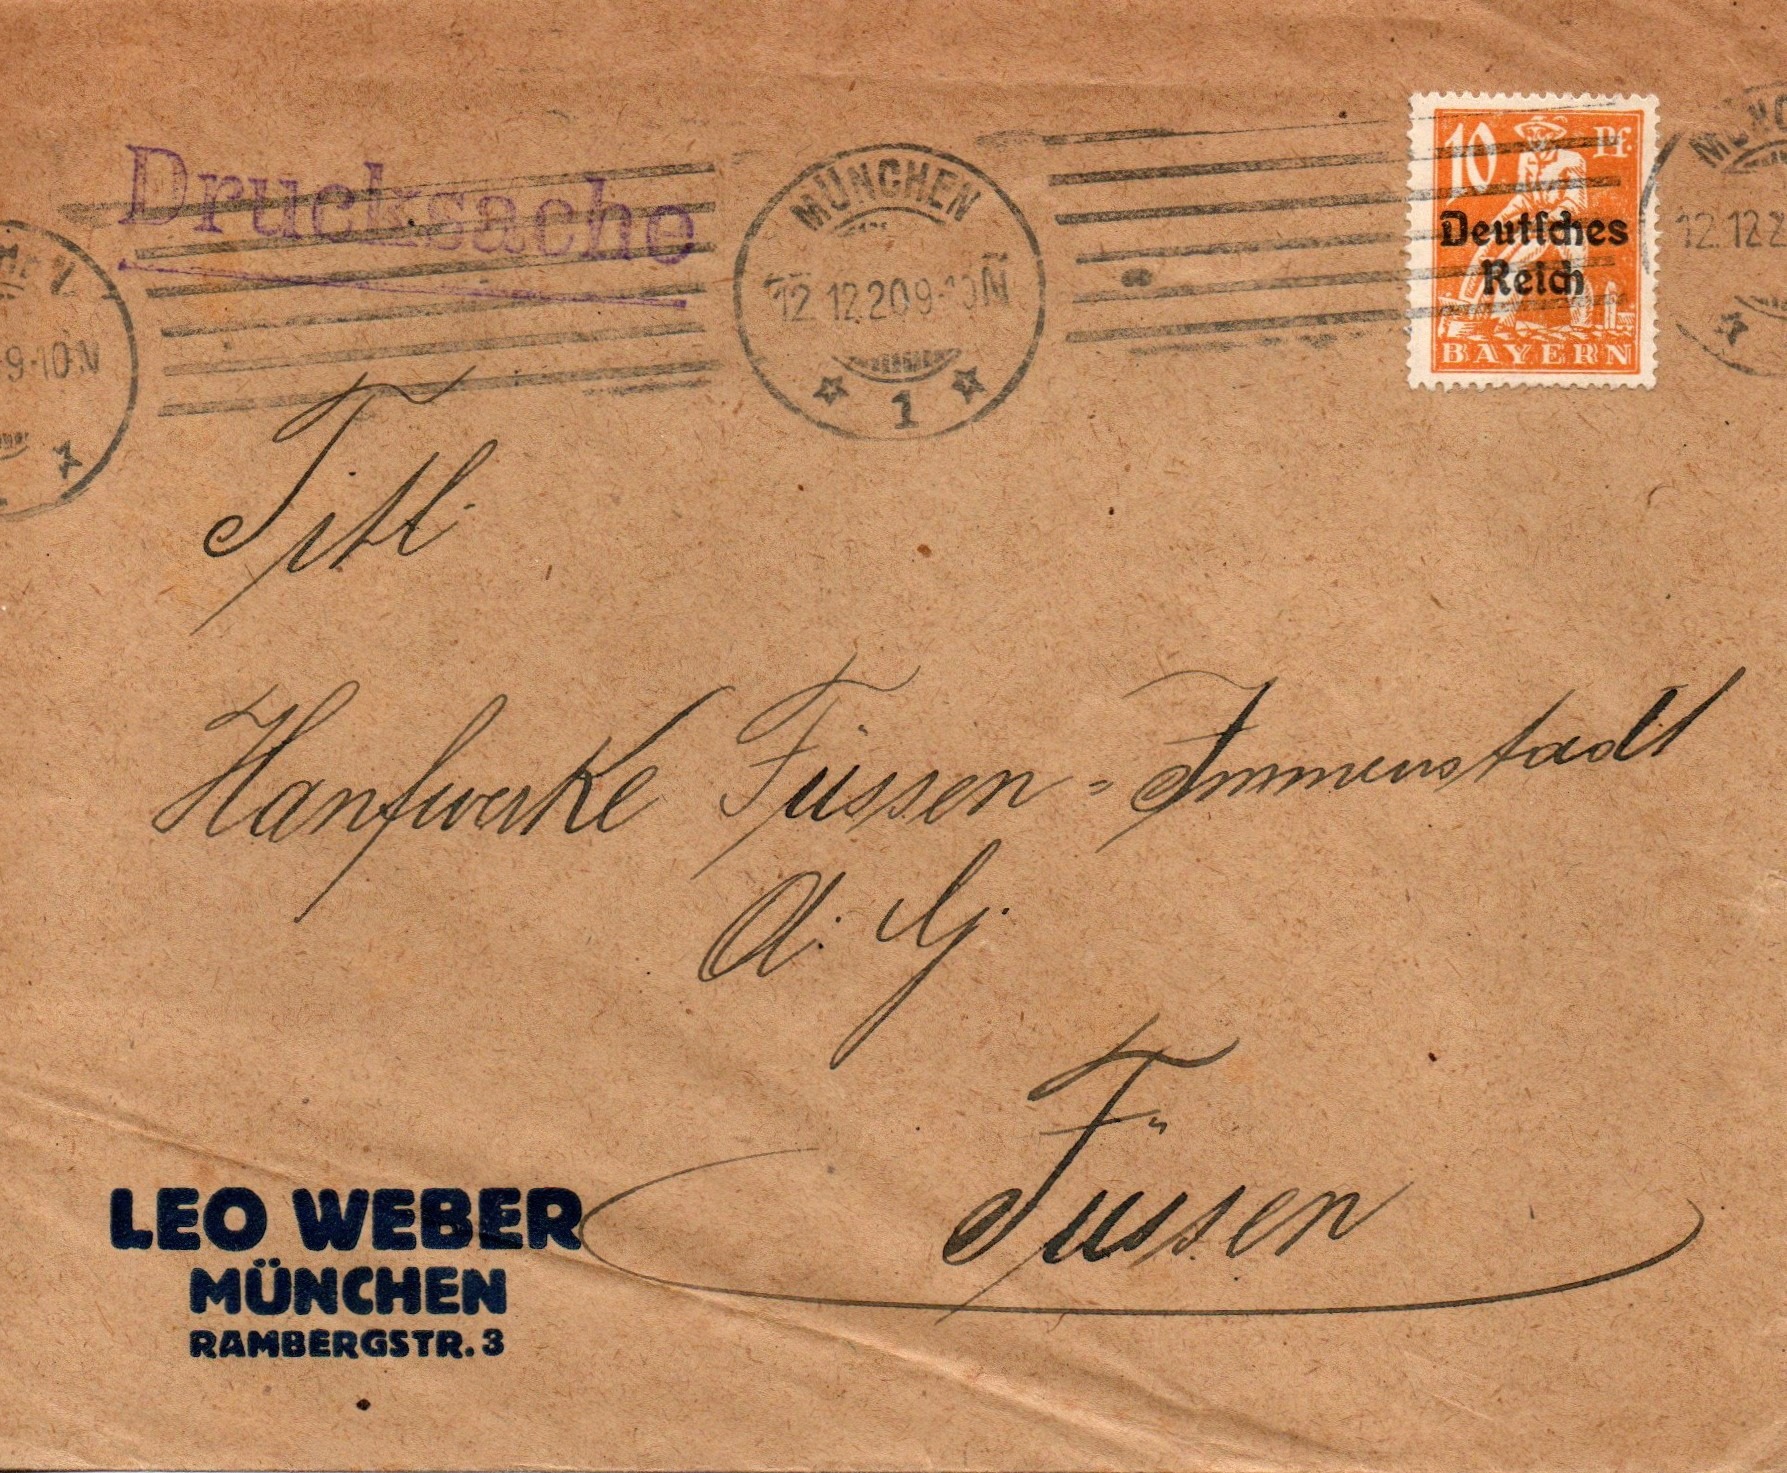 Drucksache
MÜNCHEN
12.12.20 9-10 N
1
10 Pf.
Deutſches
Reich
BAYERN
12.12.2
9-10 N
Titl.
Hanfwerke Füssen-Immenstadt
A. G.
Füssen
LEO WEBER
MÜNCHEN
RAMBERGSTR. 3